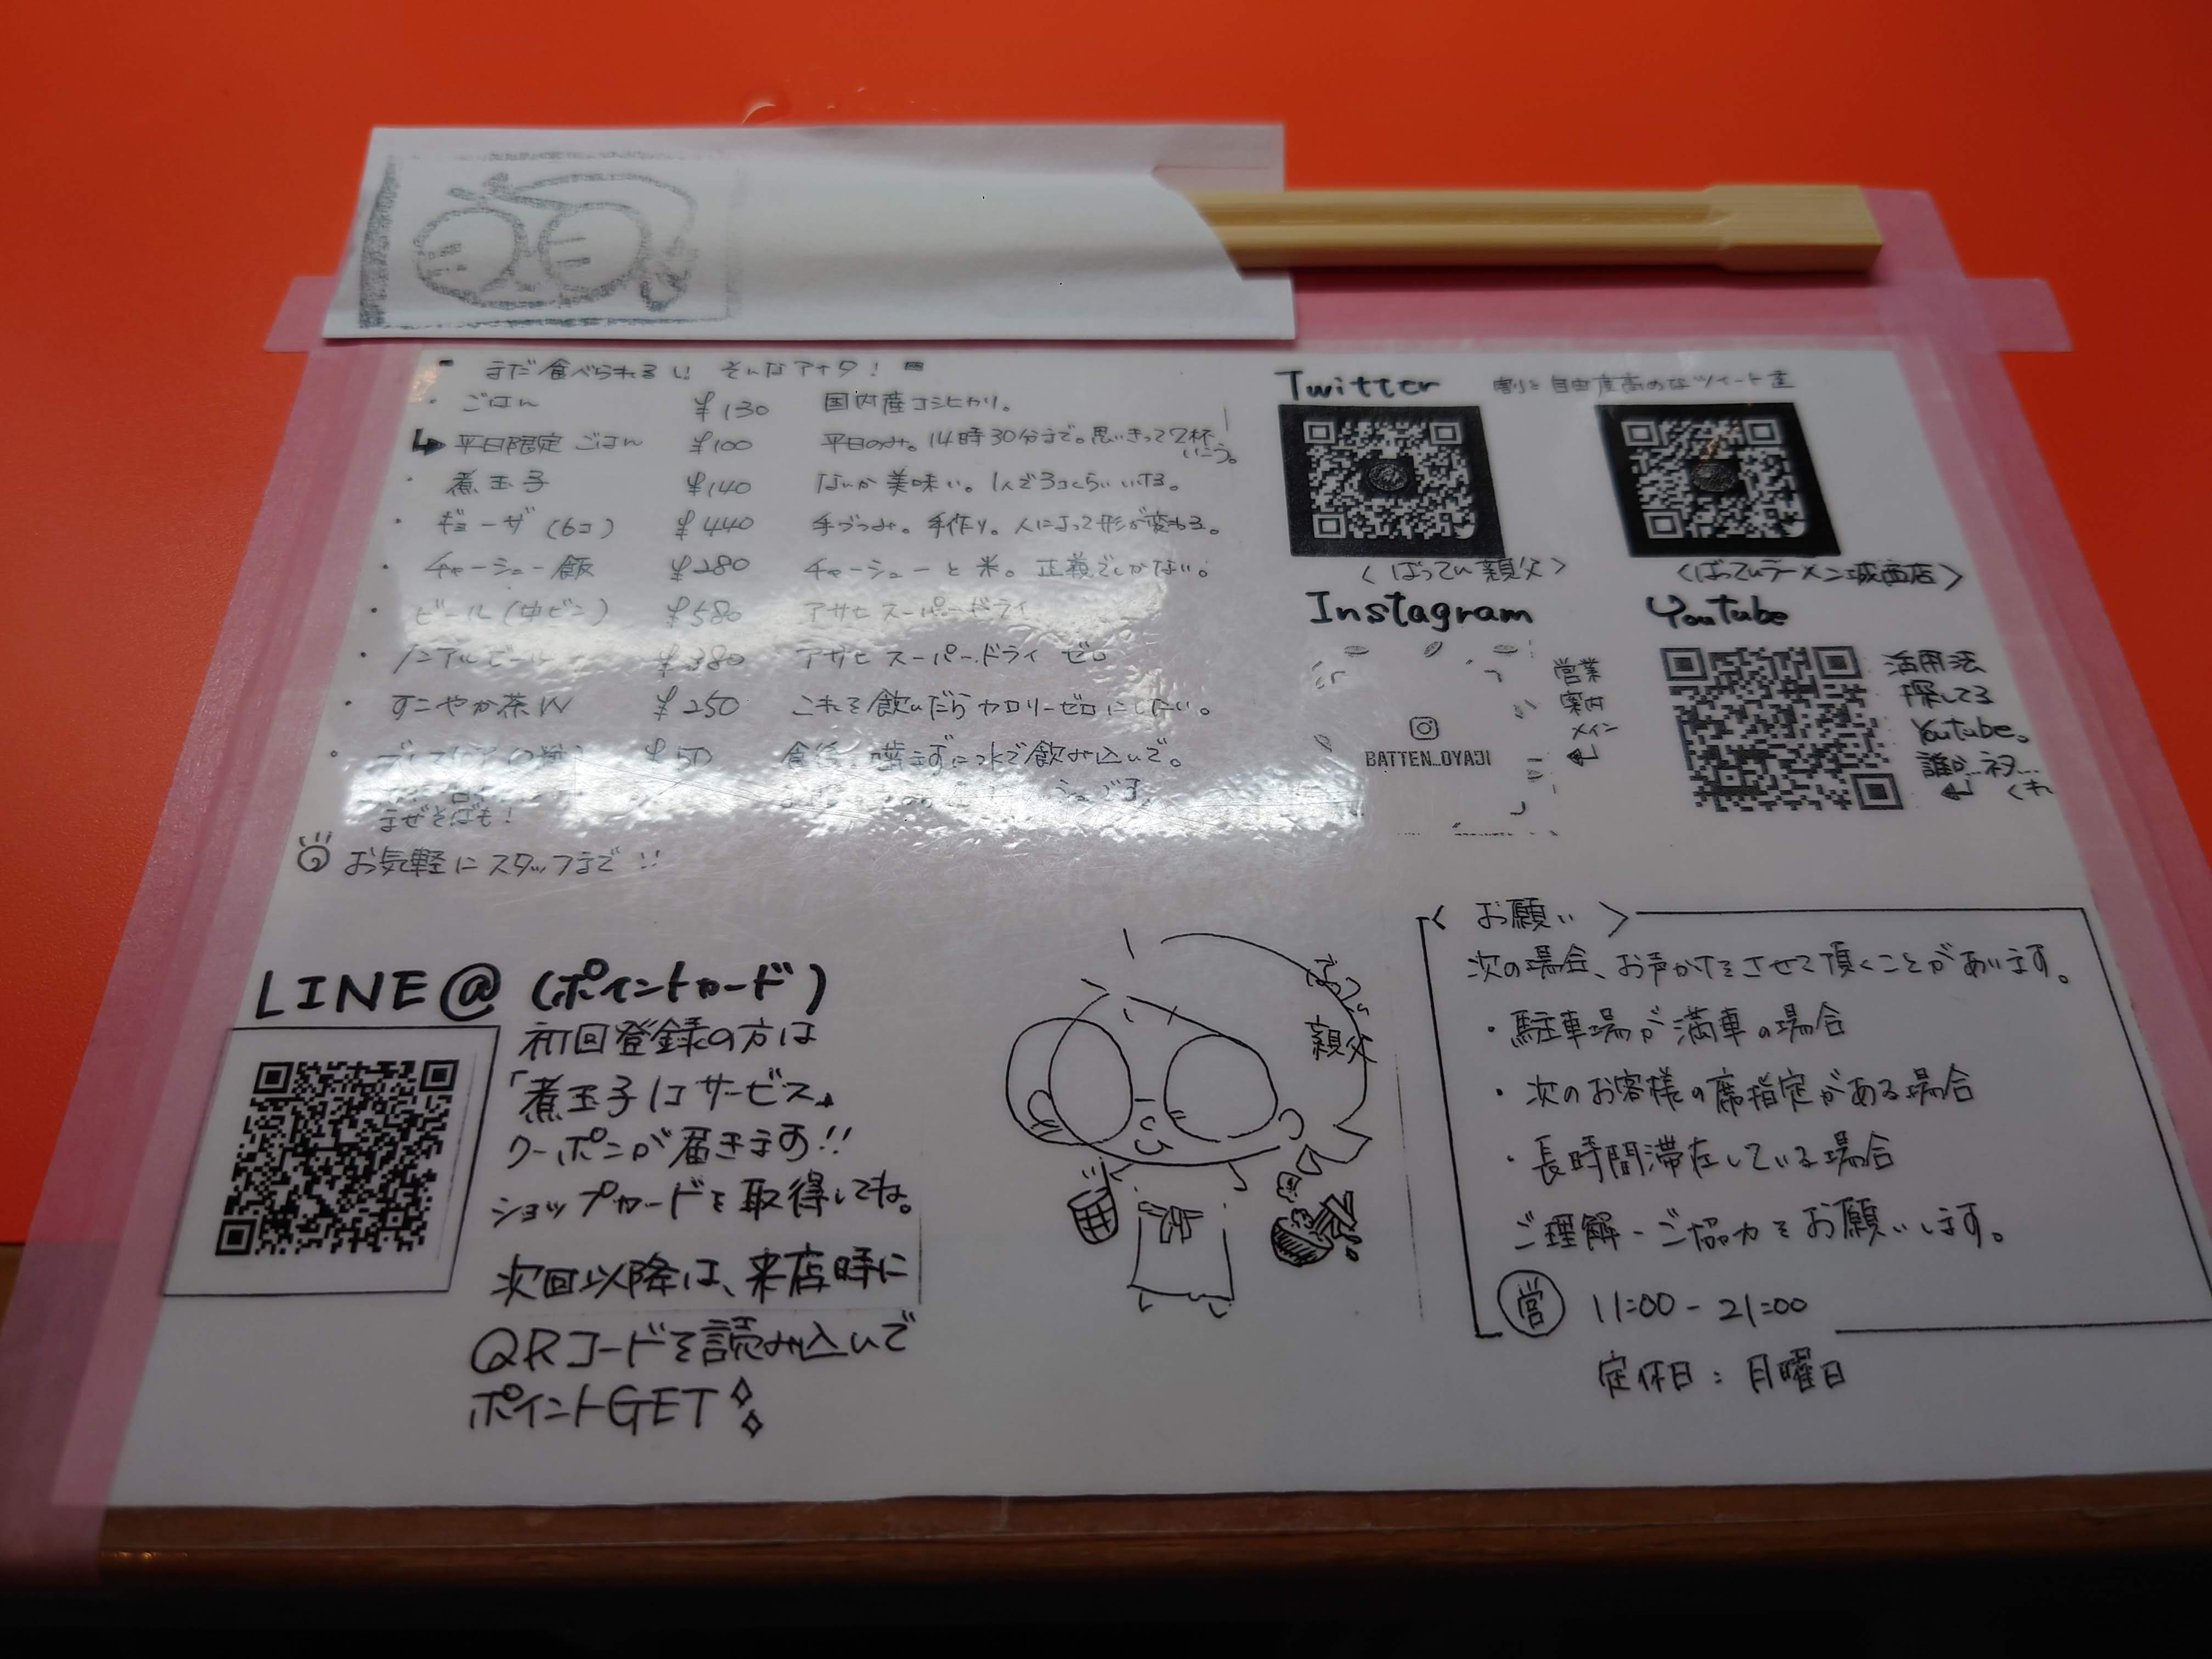 まだ食べられるし そんなアナタ！
・ごはん ¥130 国内産コシヒカリ。
平日限定 ごはん ¥100 平日のみ。14時30分まで。思いきって2杯いこう。
・煮玉子 ¥140 なんか美味い。1人で3コくらいいける。
・ギョーザ(6コ) ¥440 手づつみ。手作り。人によって形が変わる。
・チャーシュー飯 ¥280 チャーシューと米。正義でしかない。
・ビール(中ビン) ¥580 アサヒスーパードライ
・ノンアルビール ¥380 アサヒスーパードライ ゼロ
・すこやか茶W ¥250 これを飲んだらカロリーゼロにしたい。
¥50 食後、噛まずに水で飲み込んで。
まぜそばも！
お気軽にスタッフまで!!
Twitter 割と自由度高めなツイート
〈ばってん親父〉
〈ばってんラーメン城西店〉
Instagram
BATTEN_OYAJI
営業
案内
メイン
Youtube
活用法
探してる
Youtube。
誰か…ネタ…
くれ
LINE@ (ポイントカード)
初回登録の方は
「煮玉子1コサービス」
クーポンが届きます!!
ショップカードを取得してね。
次回以降は、来店時に
QRコードを読み込んで
ポイントGET
親父
〈お願い〉
次の場合、お声がけをさせて頂くことがあります。
・駐車場が満車の場合
・次のお客様の席指定がある場合
・長時間滞在している場合
ご理解・ご協力をお願いします。
営 11:00-21:00
定休日：月曜日